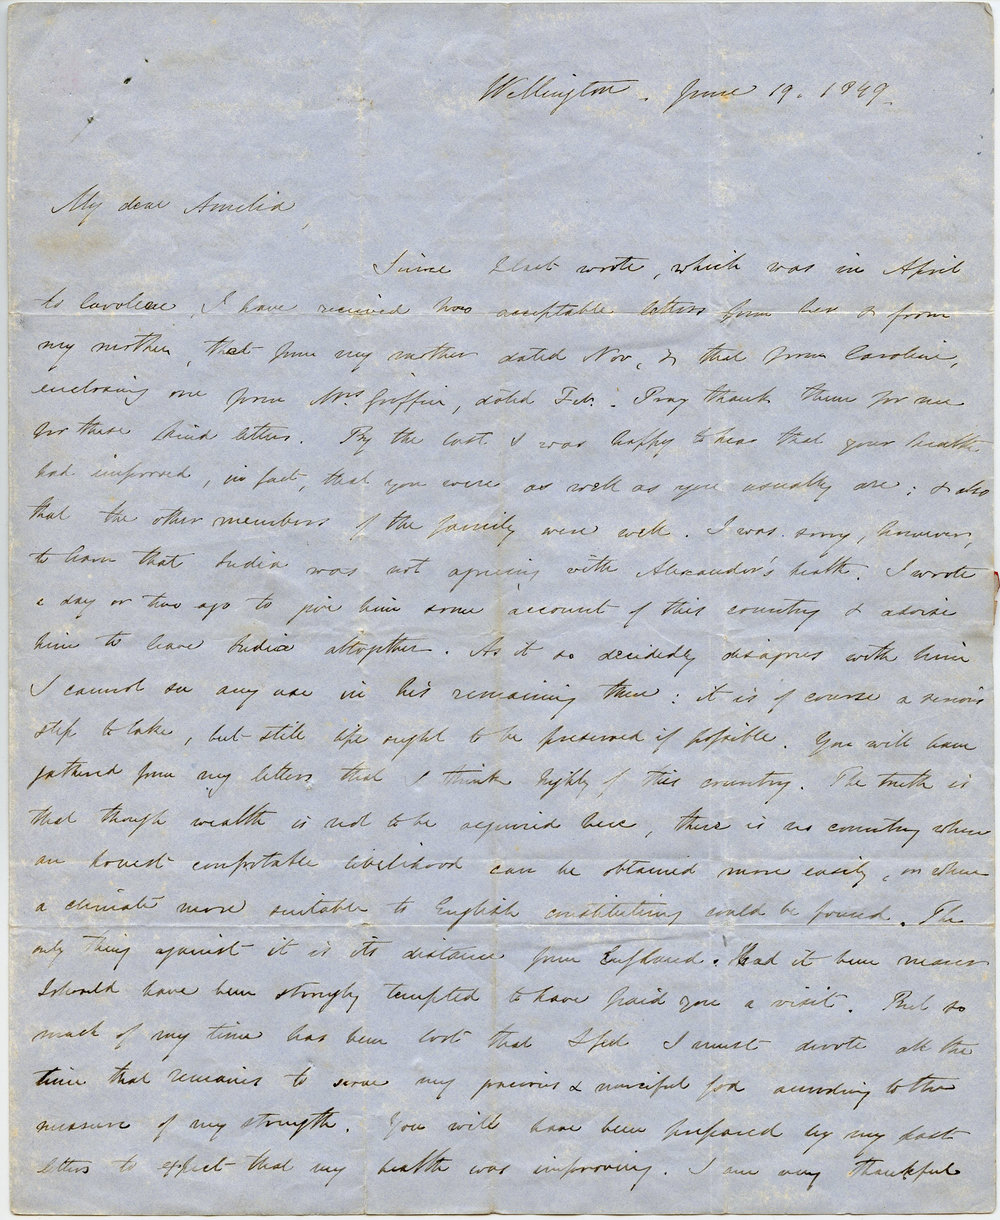 Wellington. June 19. 1849.
My dear Amelia,
Since I last wrote, which was in April
to Caroline, I have received two acceptable letters from her & from
my mother, that from my mother dated Nov, & that from Caroline,
enclosing one from Mrs. Griffin, dated Feb. Pray thank them for me
for these kind letters. By the last I was happy to hear that your health
had improved, in fact, that you were as well as you usually are; & also
that the other members of the family were well. I was sorry, however,
to learn that India was not agreeing with Alexander's health. I wrote
a day or two ago to give him some account of this country & advise
him to leave India altogether. As it so decidedly disagrees with him
I cannot see any use in his remaining there: it is of course a serious
step to take, but still life ought to be preserved if possible. You will have
gathered from my letters that I think highly of this country. The truth is
that though wealth is not to be acquired here, there is no country where
an honest comfortable livelihood can be obtained more easily, or where
a climate more suitable to English constitutions could be found. The
only thing against it is its distance from England. Had it been nearer
I should have been strongly tempted to have paid you a visit. But so
much of my time has been lost that I feel I must devote all the
time that remains to serve my gracious & merciful God according to the
measure of my strength. You will have been prepared by my last
letters to expect that my health was improving. I am very thankful